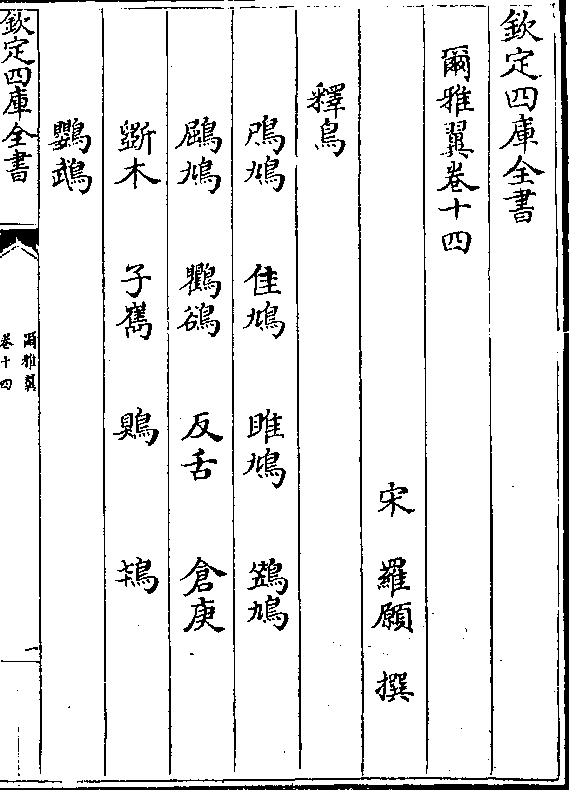 欽定四庫全書
爾雅翼卷十四
宋 羅願 撰
釋鳥
鳲鳩 隹鳩 雎鳩 鳩
鶌鳩 鸜鵒 反舌 倉庚
斲木 子巂 鶪
鸚鵡
欽定四庫全書
爾雅翼
卷十四
一